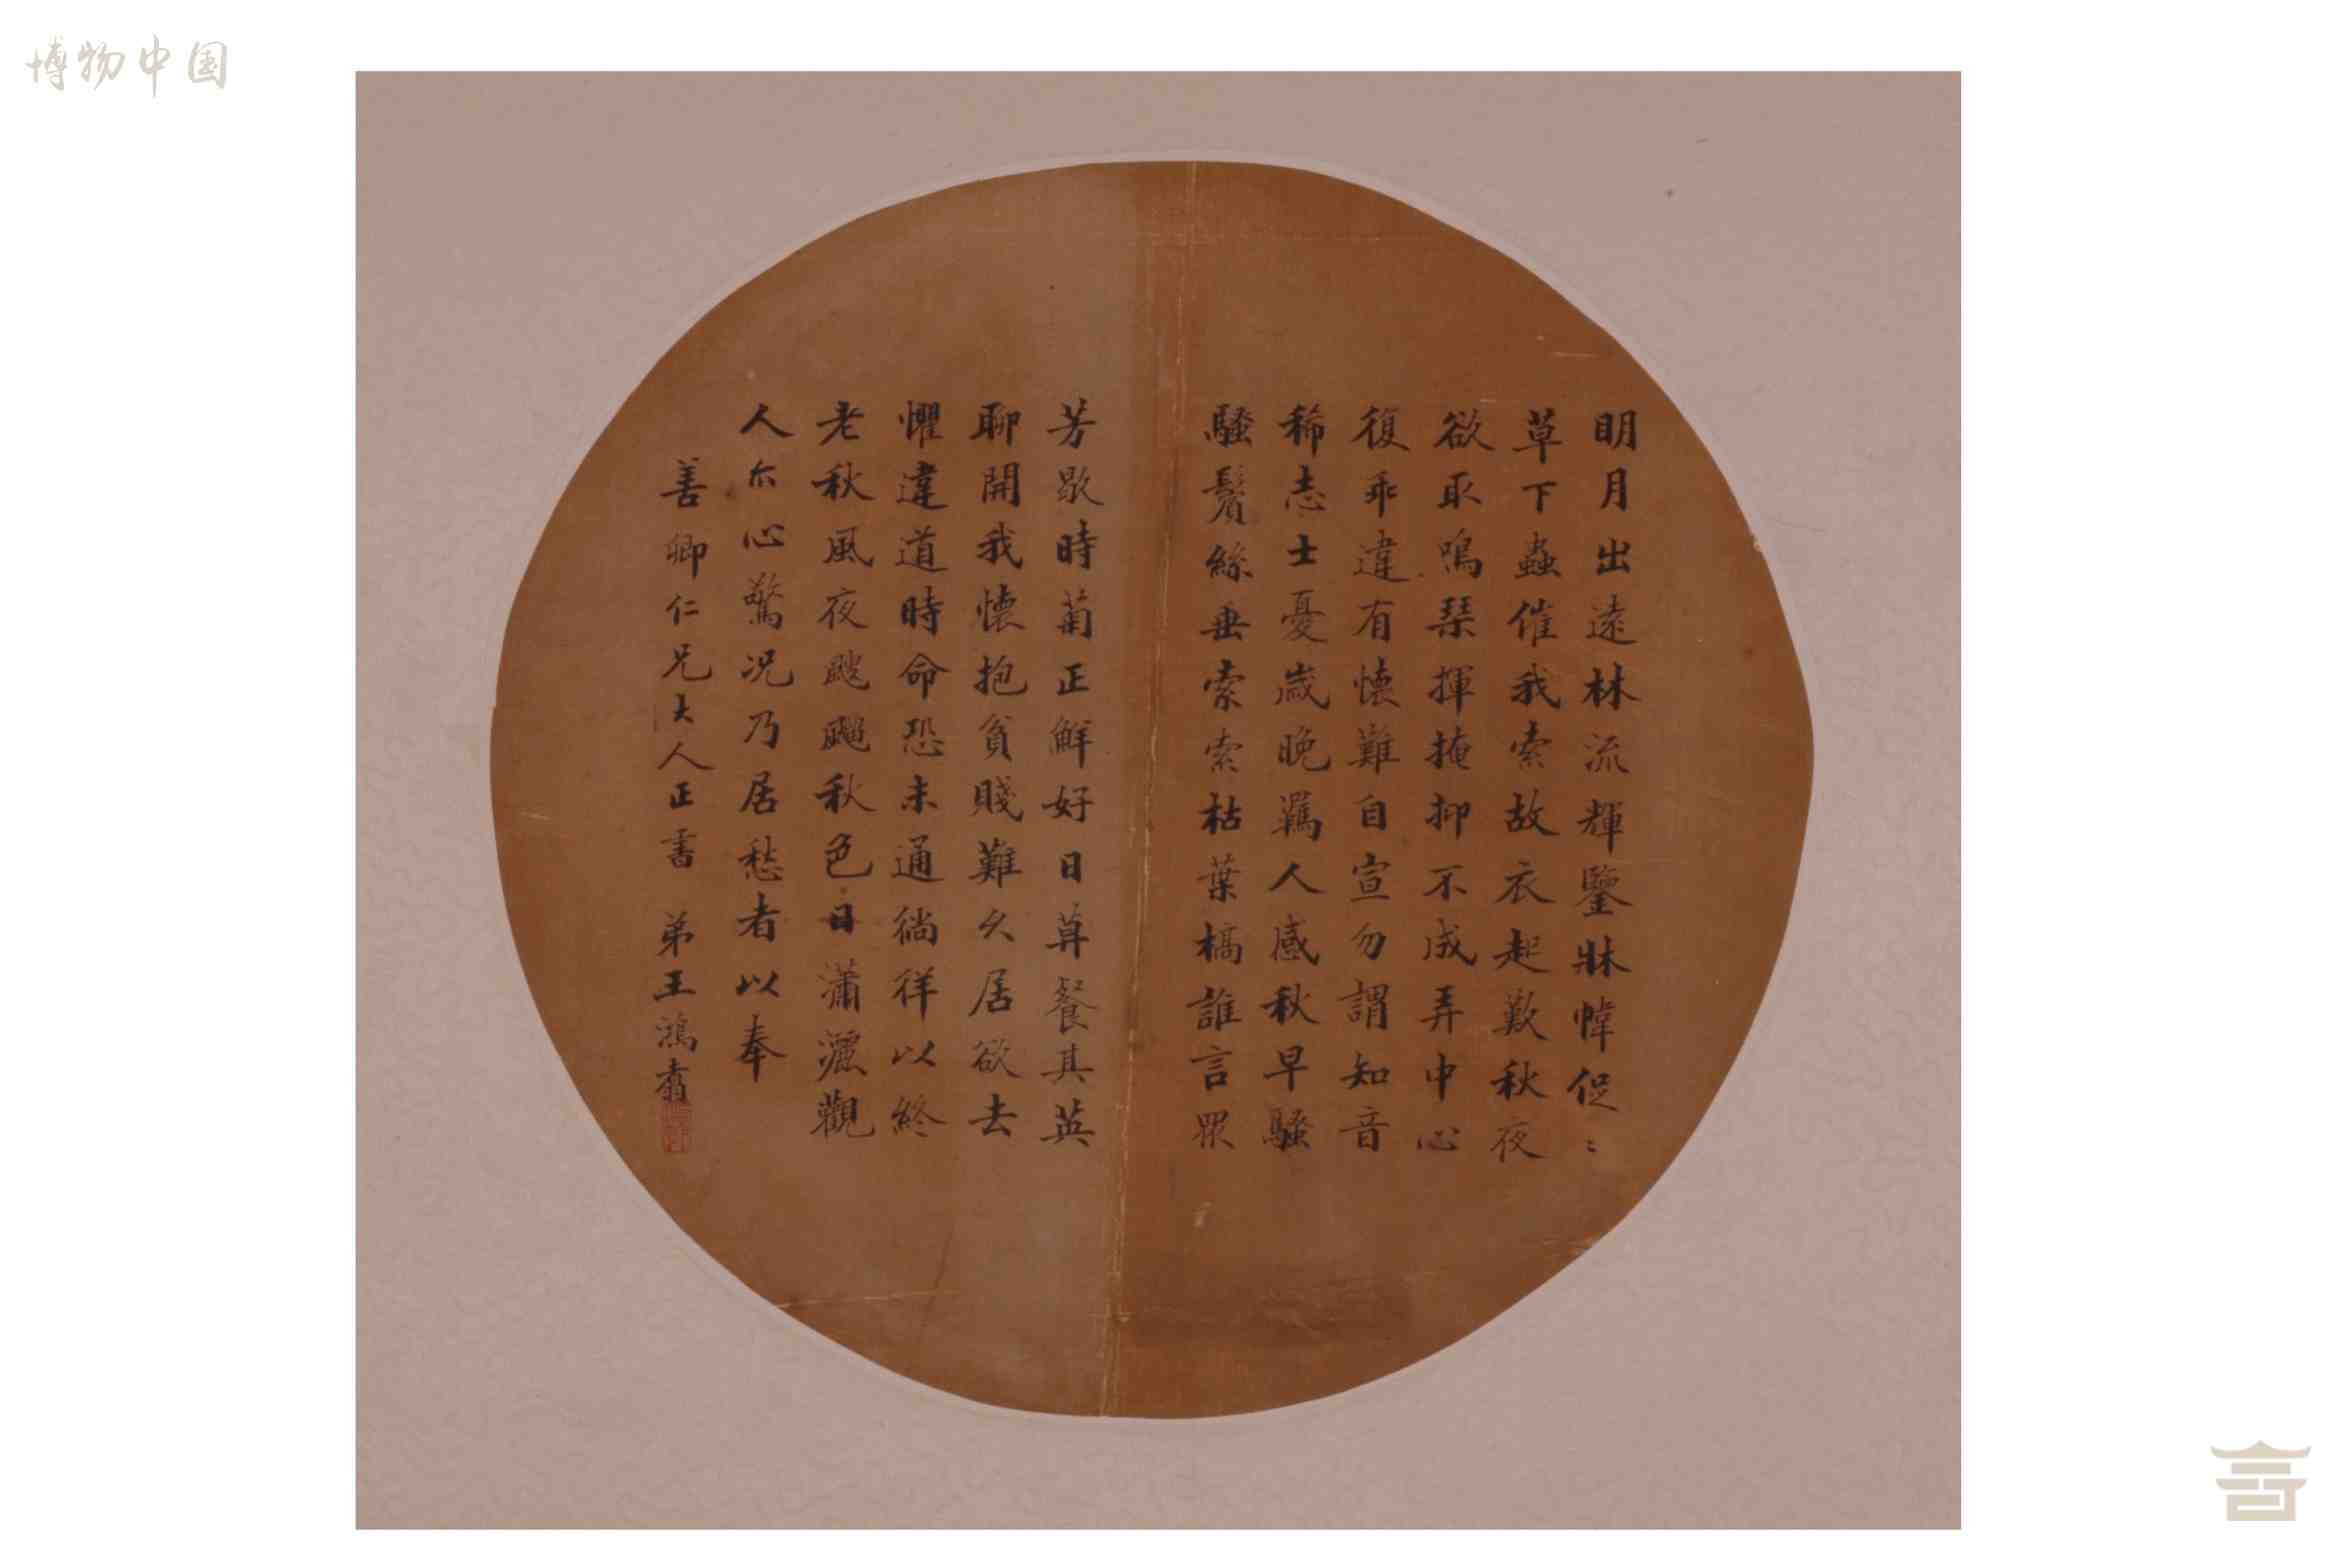 博物中国
明月出遠林流輝鑒牀幃促〻
草下蟲催我索故衣起歎秋夜
欲取鳴琴揮掩抑不成弄中心
復乖違有懷難自宣勿謂知音
稀志士憂歲晚羈人感秋早騷
騷鬢絲垂索索枯葉槁誰言眾
芳歇時菊正鮮好日莽餐其英
聊開我懷抱貧賤難久居欲去
懼違道時命恐未通徜徉以終
老秋風夜颼飀秋色日瀟灑觀
人尒心驚況乃居愁者以奉
善卿仁兄大人正書 弟王鴻翥